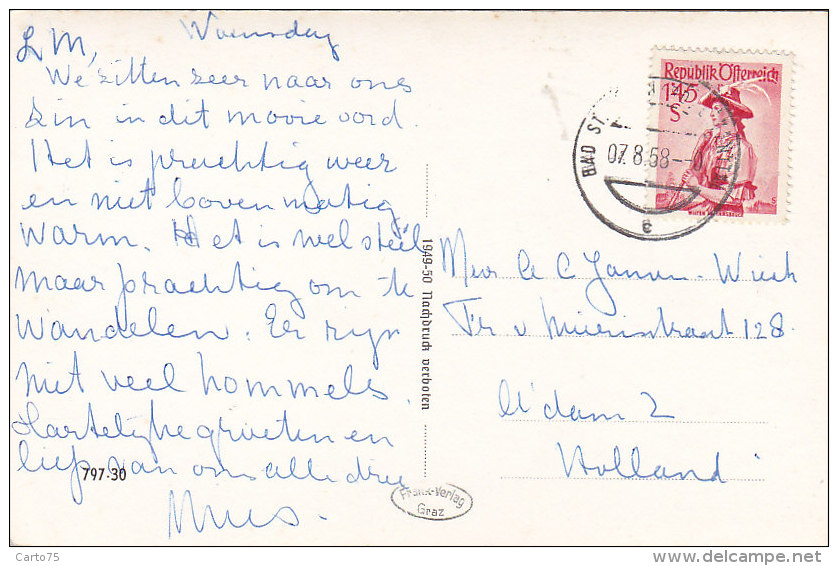 Woensdag
L M,
We zitten zeer naar ons
zin in dit mooie oord.
Het is prachtig weer
en niet bovenmatig
warm. Het is wel steil
maar prachtig om te
wandelen. Er zijn
niet veel hommels.
Hartelijke groeten en
liefs van ons alle drie
797-30
1949-50 Nachdruck verboten
Frank-Verlag
Graz
Republik Österreich
1'45
S
BAD ST
07.8.58
e
Mevr
Fr v Mierisstraat 128
A'dam Z
Holland
Carto75
delcampe.net